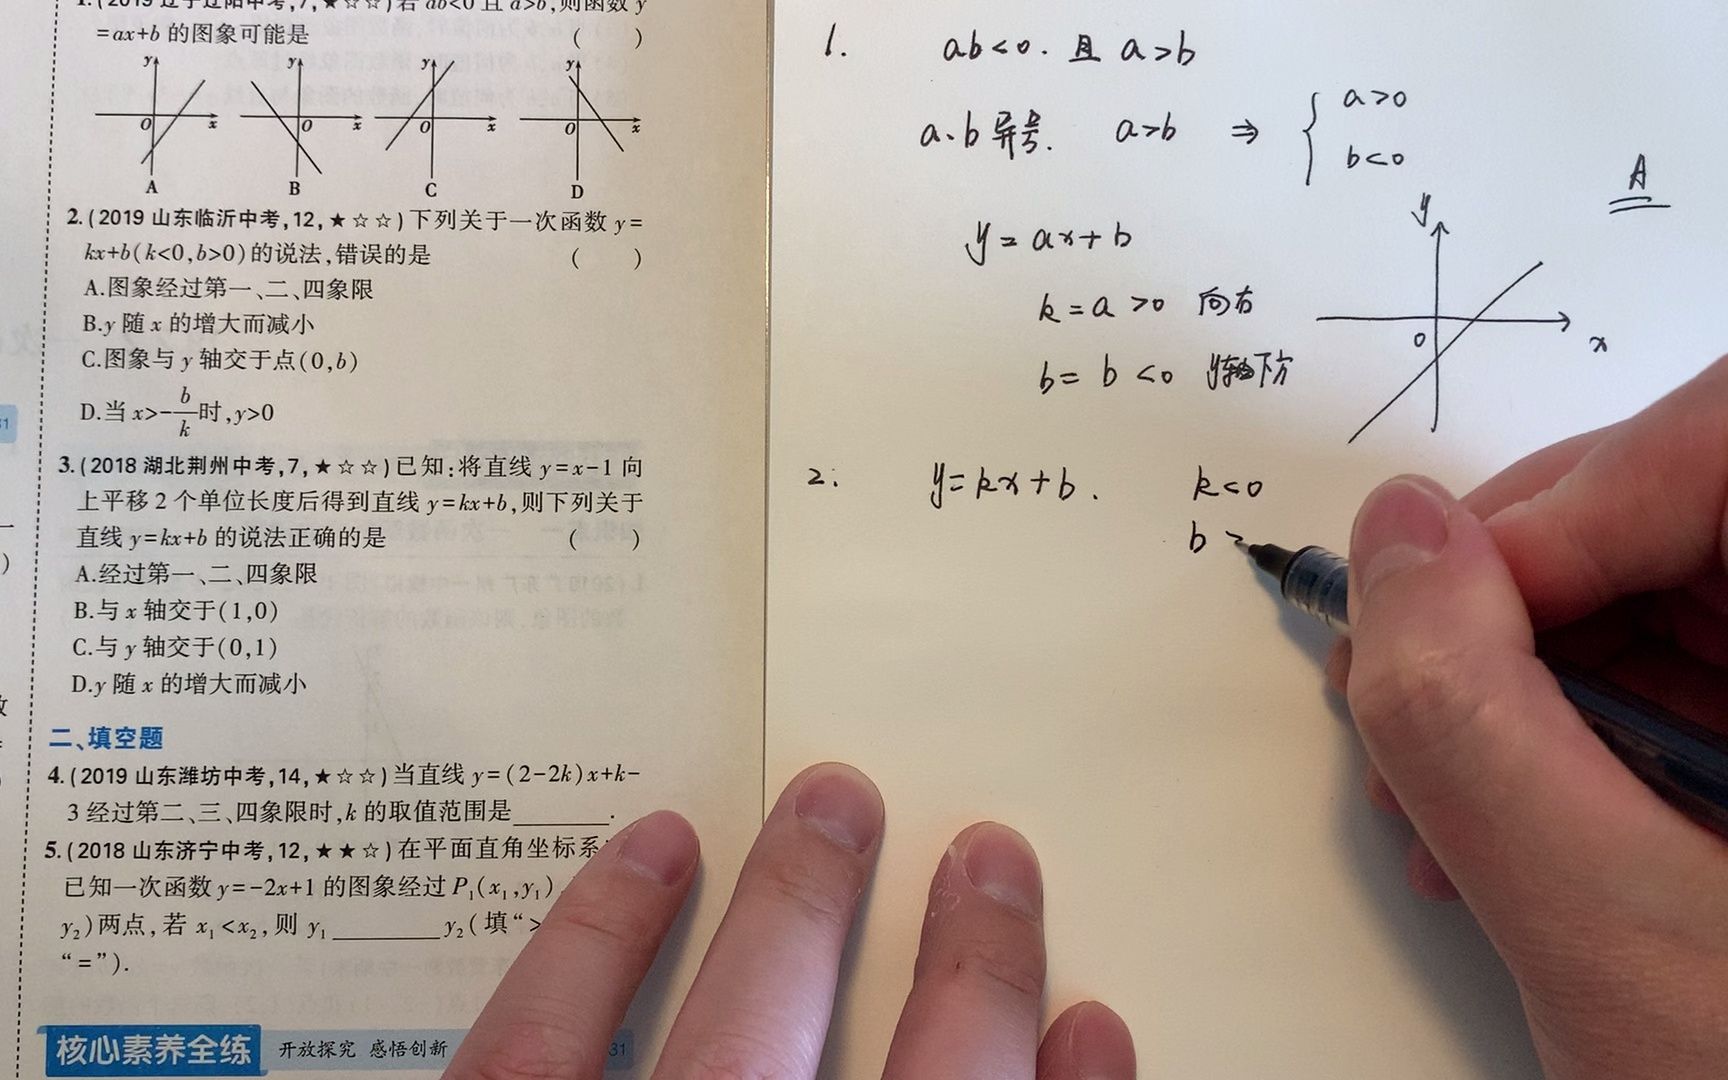 1.(2019辽宁辽阳中考,7,★☆☆)若 ab<0 且 a>b,则函数 y
=ax+b 的图象可能是 ( )
y y y y
O x O x O x O x
A B C D
2.(2019 山东临沂中考,12,★☆☆)下列关于一次函数 y=
kx+b(k<0,b>0)的说法,错误的是 ( )
A.图象经过第一、二、四象限
B.y 随 x 的增大而减小
C.图象与 y 轴交于点(0,b)
D.当 x>-b/k时,y>0
3.(2018 湖北荆州中考,7,★☆☆)已知:将直线 y=x-1 向
上平移 2 个单位长度后得到直线 y=kx+b,则下列关于
直线 y=kx+b 的说法正确的是 ( )
A.经过第一、二、四象限
B.与 x 轴交于(1,0)
C.与 y 轴交于(0,1)
D.y 随 x 的增大而减小
二、填空题
4.(2019 山东潍坊中考,14,★☆☆)当直线 y=(2-2k)x+k-
3 经过第二、三、四象限时,k 的取值范围是________.
5.(2018 山东济宁中考,12,★★☆)在平面直角坐标系
已知一次函数 y=-2x+1 的图象经过 P₁(x₁,y₁)
y₂)两点,若 x₁<x₂,则 y₁________y₂(填“>
“=”).
核心素养全练 开放探究 感悟创新
31
1. ab<0. 且 a>b
a、b 异号. a>b ⇒ { a>0
b<0
A
y=ax+b
k=a>0 向右
b=b<0 y轴下方
y
O
x
2: y=kx+b. k<0
b >